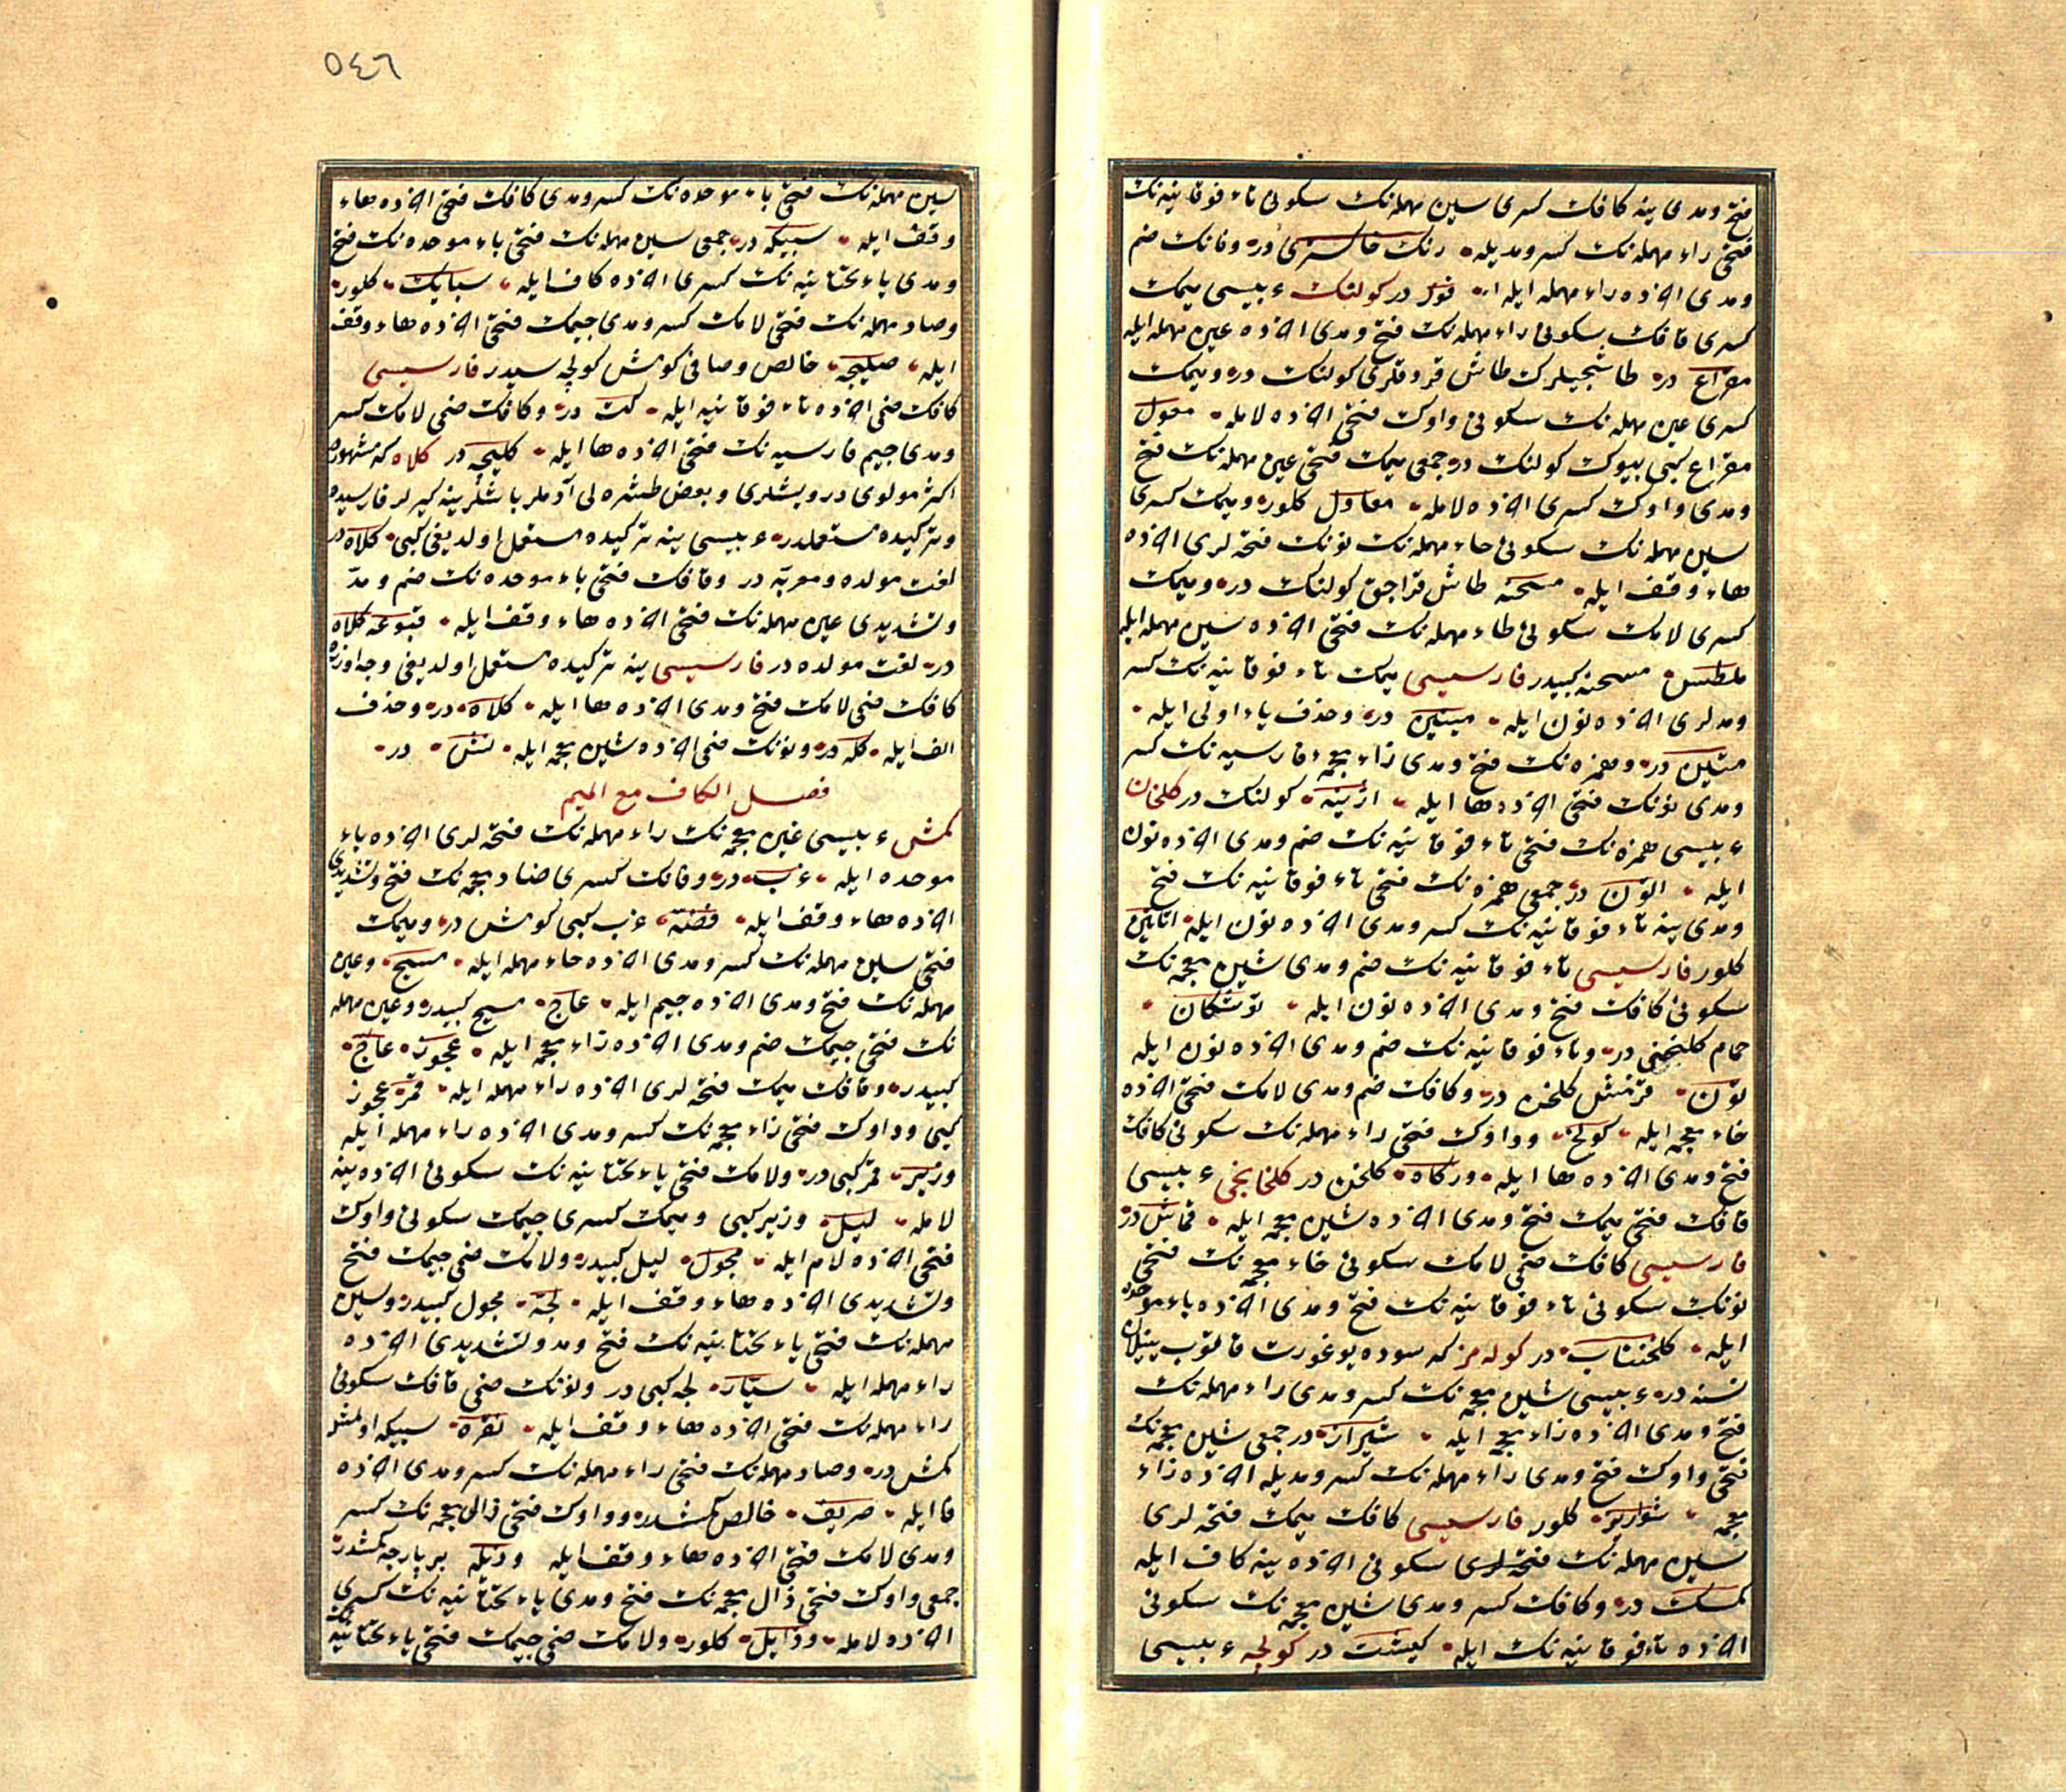 فتح ومدی ینه کافک کسری سین مهمله‌نک سکونی تاء فوقانیه‌نک
فتحی راء مهمله‌نک کسر ومدیله رنک خاکستری در وفانک ضم
ومدی اخرده راء مهمله ایله در کولنک عربیسی میمک
کسری قافک سکونی راء مهمله‌نک فتح ومدی اخرده عین مهمله ایله
مقراع در طاشجیلرک طاش کولنک در ومیمک
کسری عین مهمله‌نک سکونی واوک فتحی اخرده لامله معول
مقراع کبی بیوک کولنک در جمعی میمک فتحی عین مهمله‌نک فتح
ومدی واوک کسری اخرده لامله معاول کلور ومیمک کسری
سین مهمله‌نک سکونی حاء مهمله‌نک نونک فتحه‌لری اخرده
هاء وقف ایله مسحنه طاش کولنک در ومیمک
کسری لامک سکونی طاء مهمله‌نک فتحی اخرده سین مهمله ایله
ملطس مسحنه کبیدر فارسیسی میمک تاء فوقانیه‌نک کسر
ومدلری اخرده نون ایله میتین در وحذف یاء اولی ایله
متین در وهمزه‌نک فتح ومدی زاء معجمه فارسیه‌نک کسر
ومدی نونک فتحی اخرده ها ایله اژینه کولنک در کلخان
عربیسی همزه‌نک فتحی تاء فوقانیه‌نک ضم ومدی اخرده نون
ایله اتون در جمعی همزه‌نک فتحی تاء فوقانیه‌نک فتح
ومدی ینه تاء فوقانیه‌نک کسر ومدی اخرده نون ایله اتاتین
کلور فارسیسی تاء فوقانیه‌نک ضم ومدی شین معجمه‌نک
سکونی کافک فتح ومدی اخرده نون ایله توشکان
حمام کلخنی در وتاء فوقانیه‌نک ضم ومدی اخرده نون ایله
تون کلخن در وکافک ضم ومدی لامک فتحی اخرده
خاء معجمه ایله کولخ وواوک فتحی راء مهمله‌نک سکونی کافک
فتح ومدی اخرده ها ایله ورکاه کلخن در کلخانجی عربیسی
قافک فتحی میمک فتح ومدی اخرده شین معجمه ایله قماش در
فارسیسی کافک ضمی لامک سکونی خاء معجمه‌نک فتحی
نونک سکونی تاء فوقانیه‌نک فتح ومدی اخرده باء موحده
ایله کلخنتاب در کوله‌مز که سوده یوغورت قاتوب
نسنه در عربیسی شین معجمه‌نک کسر ومدی راء مهمله‌نک
فتح ومدی اخرده زاء معجمه ایله شیراز در جمعی شین معجمه‌نک
فتحی واوک فتح ومدی راء مهمله‌نک کسر ومدیله اخرده زاء
معجمه شواریز کلور فارسیسی کافک میمک فتحه‌لری
سین مهمله‌نک سکونی اخرده ینه کاف ایله
کمسک در وکافک کسر ومدی شین معجمه‌نک سکونی
اخرده تاء فوقانیه‌نک ایله کیشت در کولچه عربیسی
٥٤٦
سین مهمله‌نک فتحی باء موحده‌نک کسر ومدی کافک فتحی اخرده هاء
وقف ایله سبیکه در جمعی سین مهمله‌نک فتحی باء موحده‌نک فتح
ومدی یاء تحتانیه‌نک کسری اخرده کاف ایله سبایک کلور
وصاد مهمله‌نک فتحی لامک کسر ومدی جیمک فتحی اخرده هاء وقف
ایله صلیجه خالص وصافی کومش کولچه‌سیدر فارسیسی
کافک ضمی اخرده تاء فوقانیه ایله کت در وکافک ضمی لامک کسر
ومدی جیم فارسیه‌نک فتحی اخرده ها ایله کلیچه در کلاه که مشهوردر
اکثر مولوی درویشلری وبعض طشره‌لی آدملر باشلرینه کیرلر فارسیده
وترکیده مستعملدر عربیسی ینه ترکیده مستعمل اولدیغی کبی کلاه در
لغت مولده ومعربه در وقافک فتحی باء موحده‌نک ضم ومد
وتشدیدی عین مهمله‌نک فتحی اخرده هاء وقف ایله قبوعه کلاه
در لغت مولده در فارسیسی ینه ترکیده مستعمل اولدیغی وجه اوزره
کافک ضمی لامک فتح ومدی اخرده ها ایله کلاه در وحذف
الف ایله کله در ونونک ضمی اخرده شین معجمه ایله نش در
فصل الکاف مع المیم
کمش عربیسی غین معجمه‌نک راء مهمله‌نک فتحه‌لری اخرده باء
موحده ایله غرب در وفانک کسری ضاد معجمه‌نک فتح وتشدیدی
اخرده هاء وقف ایله فضه غرب کبی کومش در ومیمک
فتحی سین مهمله‌نک کسر ومدی اخرده حاء مهمله ایله مسیح وعین
مهمله‌نک فتح ومدی اخرده جیم ایله عاج مسیح کبیدر وعین مهمله
نک فتحی جیمک ضم ومدی اخرده زاء معجمه ایله عجوز عاج
کبیدر وقافک میمک فتحه‌لری اخرده راء مهمله ایله قمر عجوز
کبی وواوک فتحی زاء معجمه‌نک کسر ومدی اخرده راء مهمله ایله
وزیر قمر کبی در ولامک فتحی یاء تحتانیه‌نک سکونی اخرده ینه
لامله لیل وزیر کبی ومیمک کسری جیمک سکونی واوک
فتحی اخرده لام ایله مجول لیل کبیدر ولامک ضمی جیمک فتح
وتشدیدی اخرده هاء وقف ایله لجه مجول کبیدر وسین
مهمله‌نک فتحی یاء تحتانیه‌نک فتح ومد وتشدیدی اخرده
راء مهمله ایله سیار لجه کبی در ونونک ضمی قافک سکونی
راء مهمله‌نک فتحی اخرده هاء وقف ایله نقره سبیکه اولمش
کمش در وصاد مهمله‌نک فتحی راء مهمله‌نک کسر ومدی اخرده
فا ایله صریف خالص کمشدر وواوک فتحی ذال معجمه‌نک کسر
ومدی لامک فتحی اخرده هاء وقف ایله وذیله بر پارچه کمشدر
جمعی واوک فتحی ذال معجمه‌نک فتح ومدی یاء تحتانیه‌نک کسری
اخرده لامله وذایل کلور ولامک ضمی جیمک فتحی یاء تحتانیه‌نک